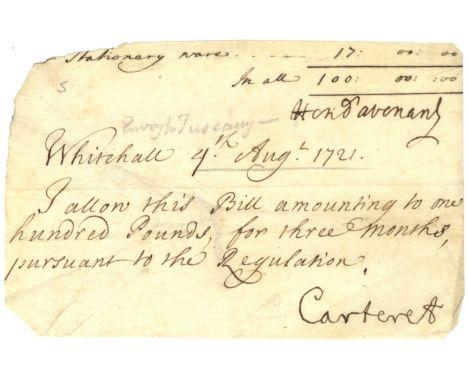 Stationary ware - - - 17: 00: 00
In all 100: 00: 00
Hen Davenant
S
Envoy to Tuscany
Whitehall 4th Augt. 1721.
I allow this Bill amounting to one
hundred Pounds, for three months,
pursuant to the Regulation.
Carteret